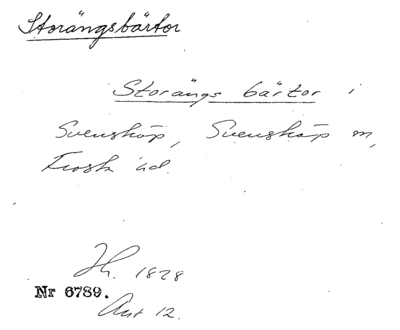 Storängsbärtor
Storängs bärtor i
Svensköp, Svensköp sn,
Frosta hd.
Jh. 1828
Nr 6789.
Akt 12.